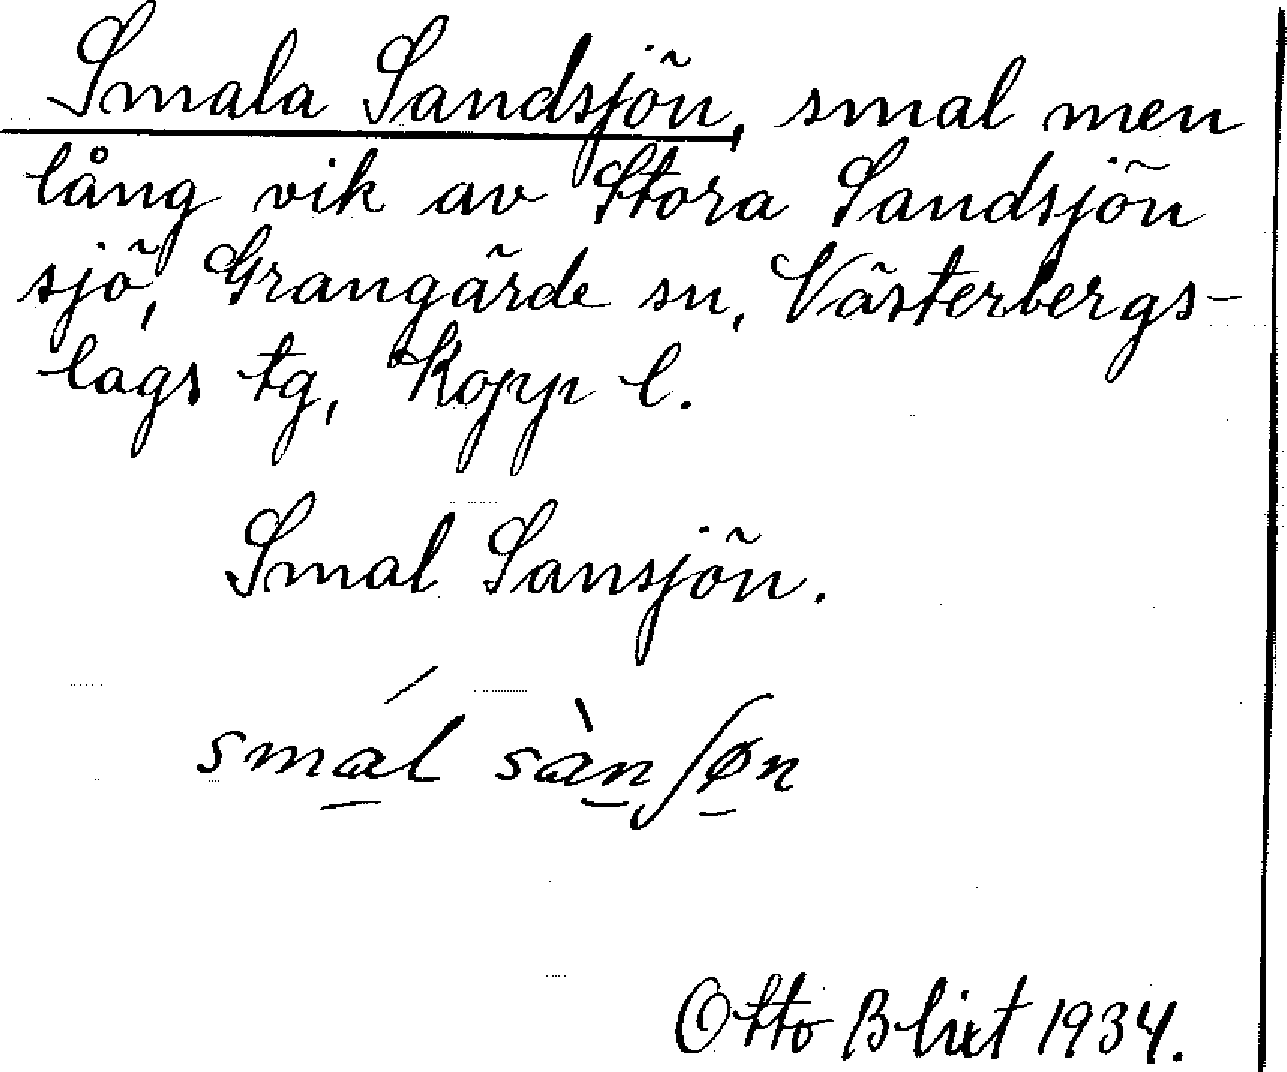 Smala Sandsjön, smal men
lång vik av Stora Sandsjön
sjö, Grangärde sn, Västerbergs-
lags tg, Kopp l.
Smal Sansjön.
smál sànʃøn
Otto Blixt 1934.